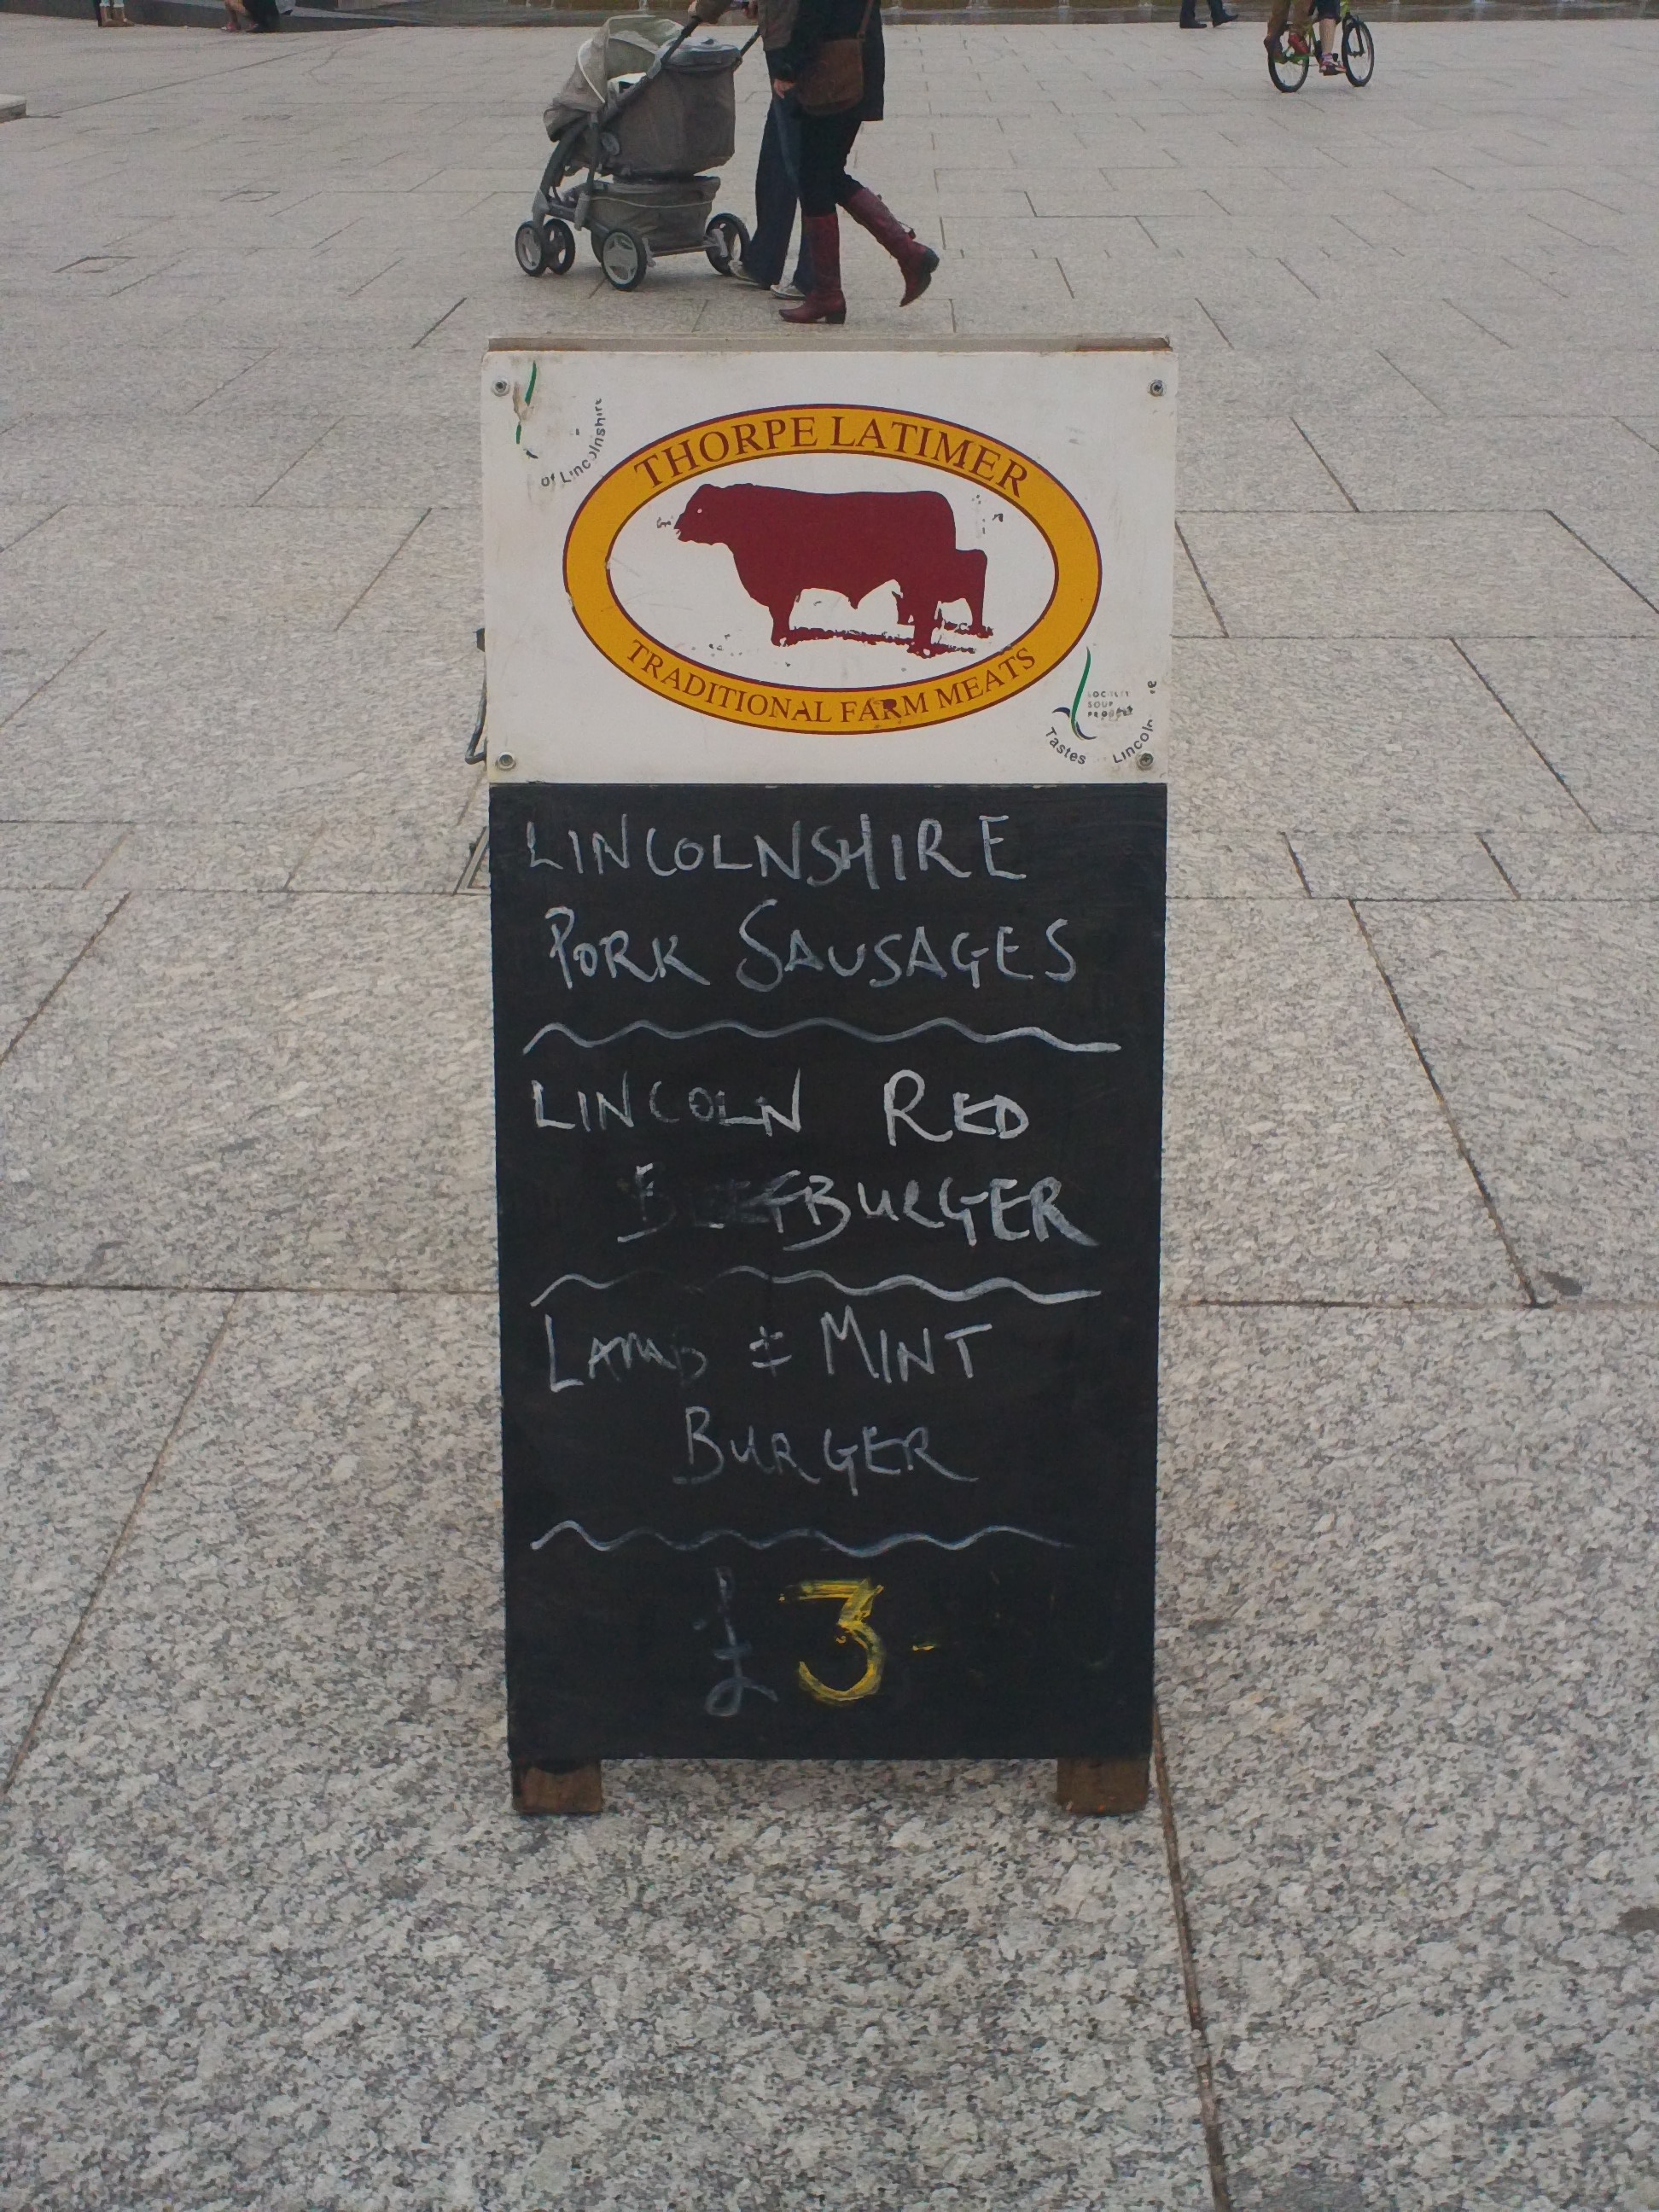 of Lincolnshire
THORPE LATIMER
TRADITIONAL FARM MEATS
Tastes
LINCOLNSHIRE
PORK SAUSAGES
LINCOLN RED
BEEFBURGER
LAMB & MINT
BURGER
£3-